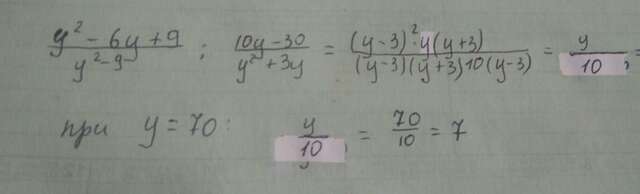 (y² - 6y + 9)/(y² - 9) ; (10y - 30)/(y² + 3y) = ((y-3)²·y(y+3))/((y-3)(y+3)10(y-3)) = y/10 =
при y = 70: y/10 = 70/10 = 7